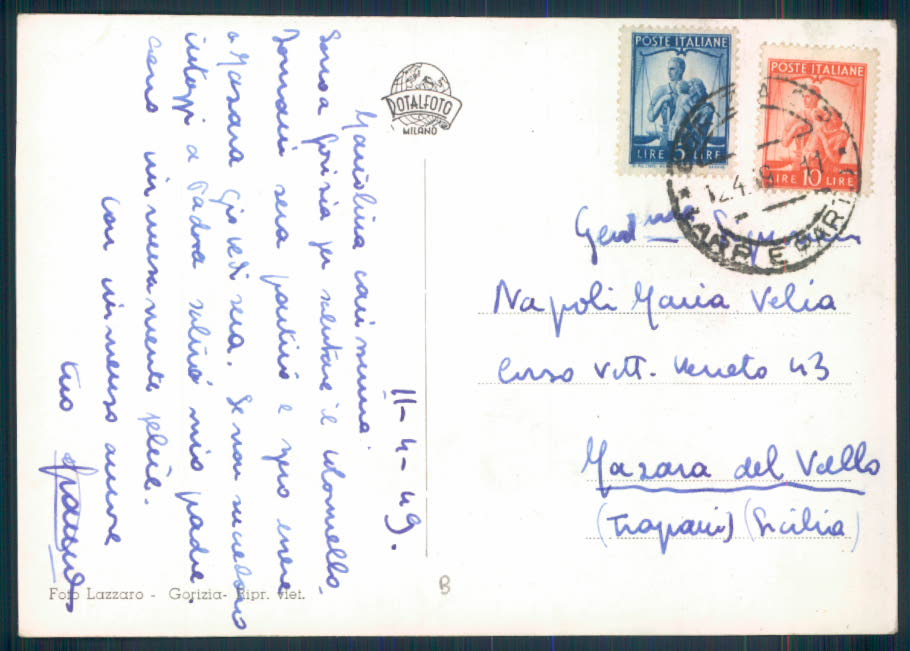 11-4-49.
Mariolina carissima
sono a Gorizia per salutare il colonnello.
Domani sera partirò e spero essere
a Mazara Giovedì sera. Se non succedono
intoppi a Padova salirà mio padre.
sono immensamente felice.
con immenso amore
tuo
ROTALFOTO
MILANO
POSTE ITALIANE
LIRE 5 LIRE
POSTE ITALIANE
LIRE 10 LIRE
12.4.49
ARR E PART
Gent.ma Signorina
Napoli Maria Velia
Corso Vitt. Veneto 43
Mazara del Vallo
(Trapani) (Sicilia)
Foto Lazzaro - Gorizia- Ripr. viet.
B